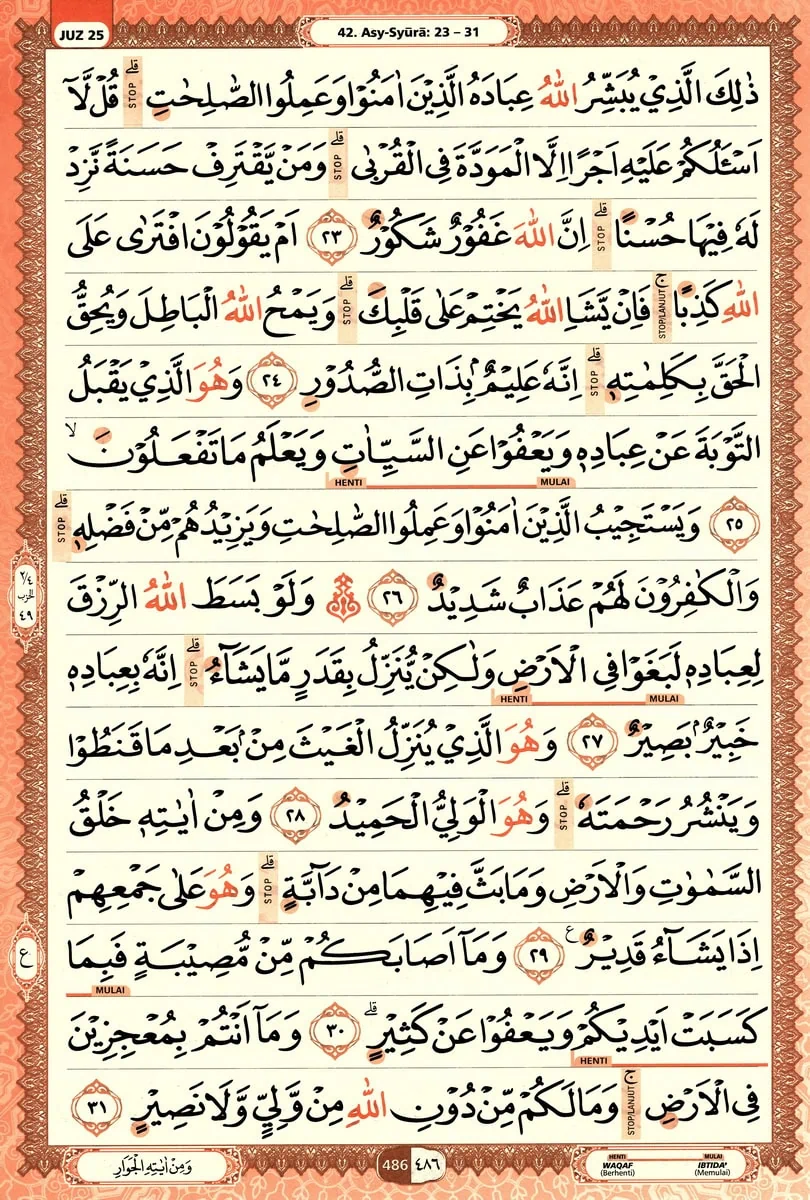 JUZ 25
42. Asy-Syūrā: 23 – 31
ذٰلِكَ الَّذِيْ يُبَشِّرُ اللّٰهُ عِبَادَهُ الَّذِيْنَ اٰمَنُوْا وَعَمِلُوا الصّٰلِحٰتِۗ STOP قُلْ لَّآ
اَسْـَٔلُكُمْ عَلَيْهِ اَجْرًا اِلَّا الْمَوَدَّةَ فِى الْقُرْبٰىۗ STOP وَمَنْ يَّقْتَرِفْ حَسَنَةً نَّزِدْ
لَهٗ فِيْهَا حُسْنًاۗ STOP اِنَّ اللّٰهَ غَفُوْرٌ شَكُوْرٌ ٢٣ اَمْ يَقُوْلُوْنَ افْتَرٰى عَلَى
اللّٰهِ كَذِبًاۚ STOP/LANJUT فَاِنْ يَّشَاِ اللّٰهُ يَخْتِمْ عَلٰى قَلْبِكَۗ STOP وَيَمْحُ اللّٰهُ الْبَاطِلَ وَيُحِقُّ
الْحَقَّ بِكَلِمٰتِهٖۗ STOP اِنَّهٗ عَلِيْمٌۢ بِذَاتِ الصُّدُوْرِ ٢٤ وَهُوَ الَّذِيْ يَقْبَلُ
التَّوْبَةَ عَنْ عِبَادِهٖ وَيَعْفُوْا عَنِ السَّيِّاٰتِ وَيَعْلَمُ مَا تَفْعَلُوْنَۙ
MULAI HENTI
٢٥ وَيَسْتَجِيْبُ الَّذِيْنَ اٰمَنُوْا وَعَمِلُوا الصّٰلِحٰتِ وَيَزِيْدُهُمْ مِّنْ فَضْلِهٖۗ STOP
وَالْكٰفِرُوْنَ لَهُمْ عَذَابٌ شَدِيْدٌ ٢٦ ۞ وَلَوْ بَسَطَ اللّٰهُ الرِّزْقَ
٢/٤ الحزب ٤٩
لِعِبَادِهٖ لَبَغَوْا فِى الْاَرْضِ وَلٰكِنْ يُّنَزِّلُ بِقَدَرٍ مَّا يَشَاۤءُۗ STOP اِنَّهٗ بِعِبَادِهٖ
MULAI HENTI
خَبِيْرٌۢ بَصِيْرٌ ٢٧ وَهُوَ الَّذِيْ يُنَزِّلُ الْغَيْثَ مِنْۢ بَعْدِ مَا قَنَطُوْا
وَيَنْشُرُ رَحْمَتَهٗۗ STOP وَهُوَ الْوَلِيُّ الْحَمِيْدُ ٢٨ وَمِنْ اٰيٰتِهٖ خَلْقُ
السَّمٰوٰتِ وَالْاَرْضِ وَمَا بَثَّ فِيْهِمَا مِنْ دَاۤبَّةٍۗ STOP وَهُوَ عَلٰى جَمْعِهِمْ
اِذَا يَشَاۤءُ قَدِيْرٌ ࣖ ٢٩ وَمَآ اَصَابَكُمْ مِّنْ مُّصِيْبَةٍ فَبِمَا
ع
MULAI
كَسَبَتْ اَيْدِيْكُمْ وَيَعْفُوْا عَنْ كَثِيْرٍۗ ٣٠ وَمَآ اَنْتُمْ بِمُعْجِزِيْنَ
HENTI
فِى الْاَرْضِۚ STOP/LANJUT وَمَا لَكُمْ مِّنْ دُوْنِ اللّٰهِ مِنْ وَّلِيٍّ وَّلَا نَصِيْرٍ ٣١
وَمِنْ اٰيٰتِهِ الْجَوَارِ
486 ٤٨٦
HENTI MULAI
WAQAF IBTIDA'
(Berhenti) (Memulai)